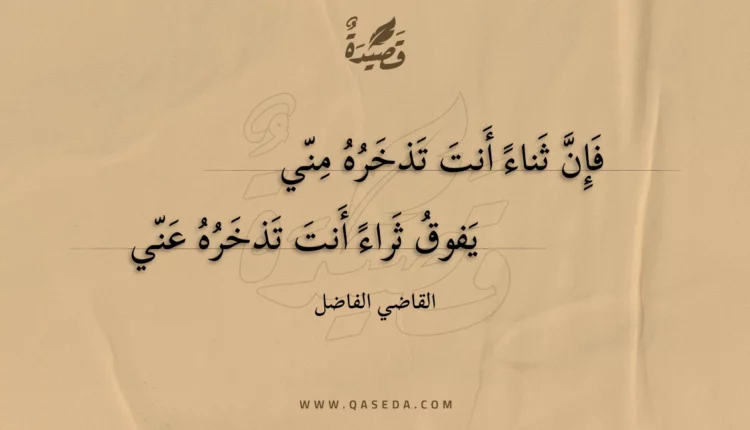 قَصِيدَةٌ
فَإِنَّ ثَناءً أَنتَ تَذخَرُهُ مِنّي
يَفوقُ ثَراءً أَنتَ تَذخَرُهُ عَنّي
القاضي الفاضل
WWW.QASEDA.COM